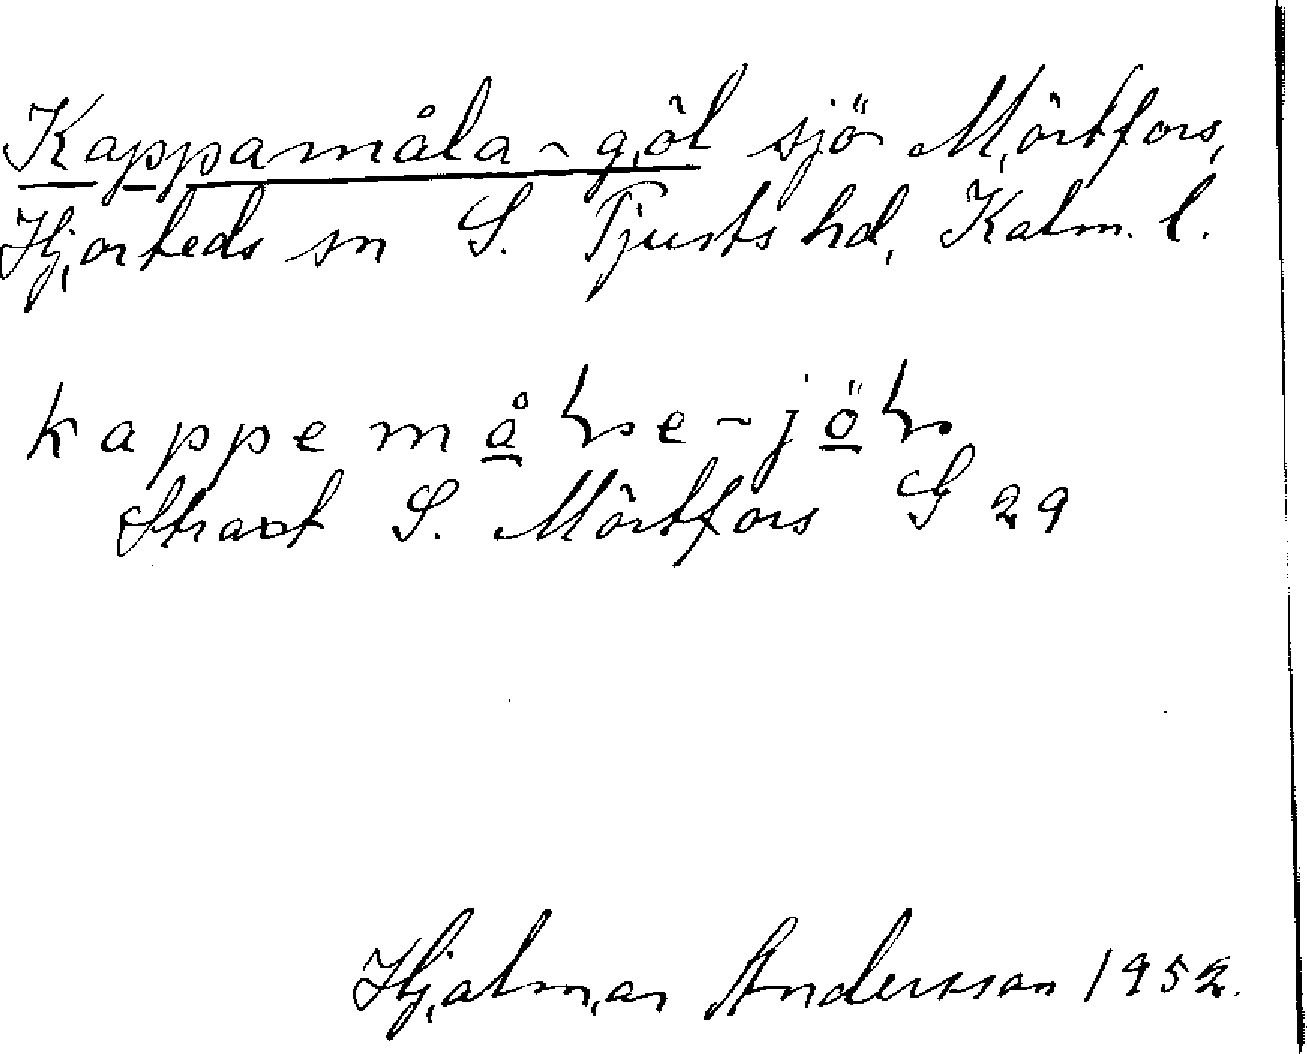 Kappamåla-göl sjö Mörtfors,
Hjorteds sn S. Tjusts hd, Kalm. l.
kappemåɽe-jöɽ
Strax S. Mörtfors G 29
Hjalmar Andersson 1952.